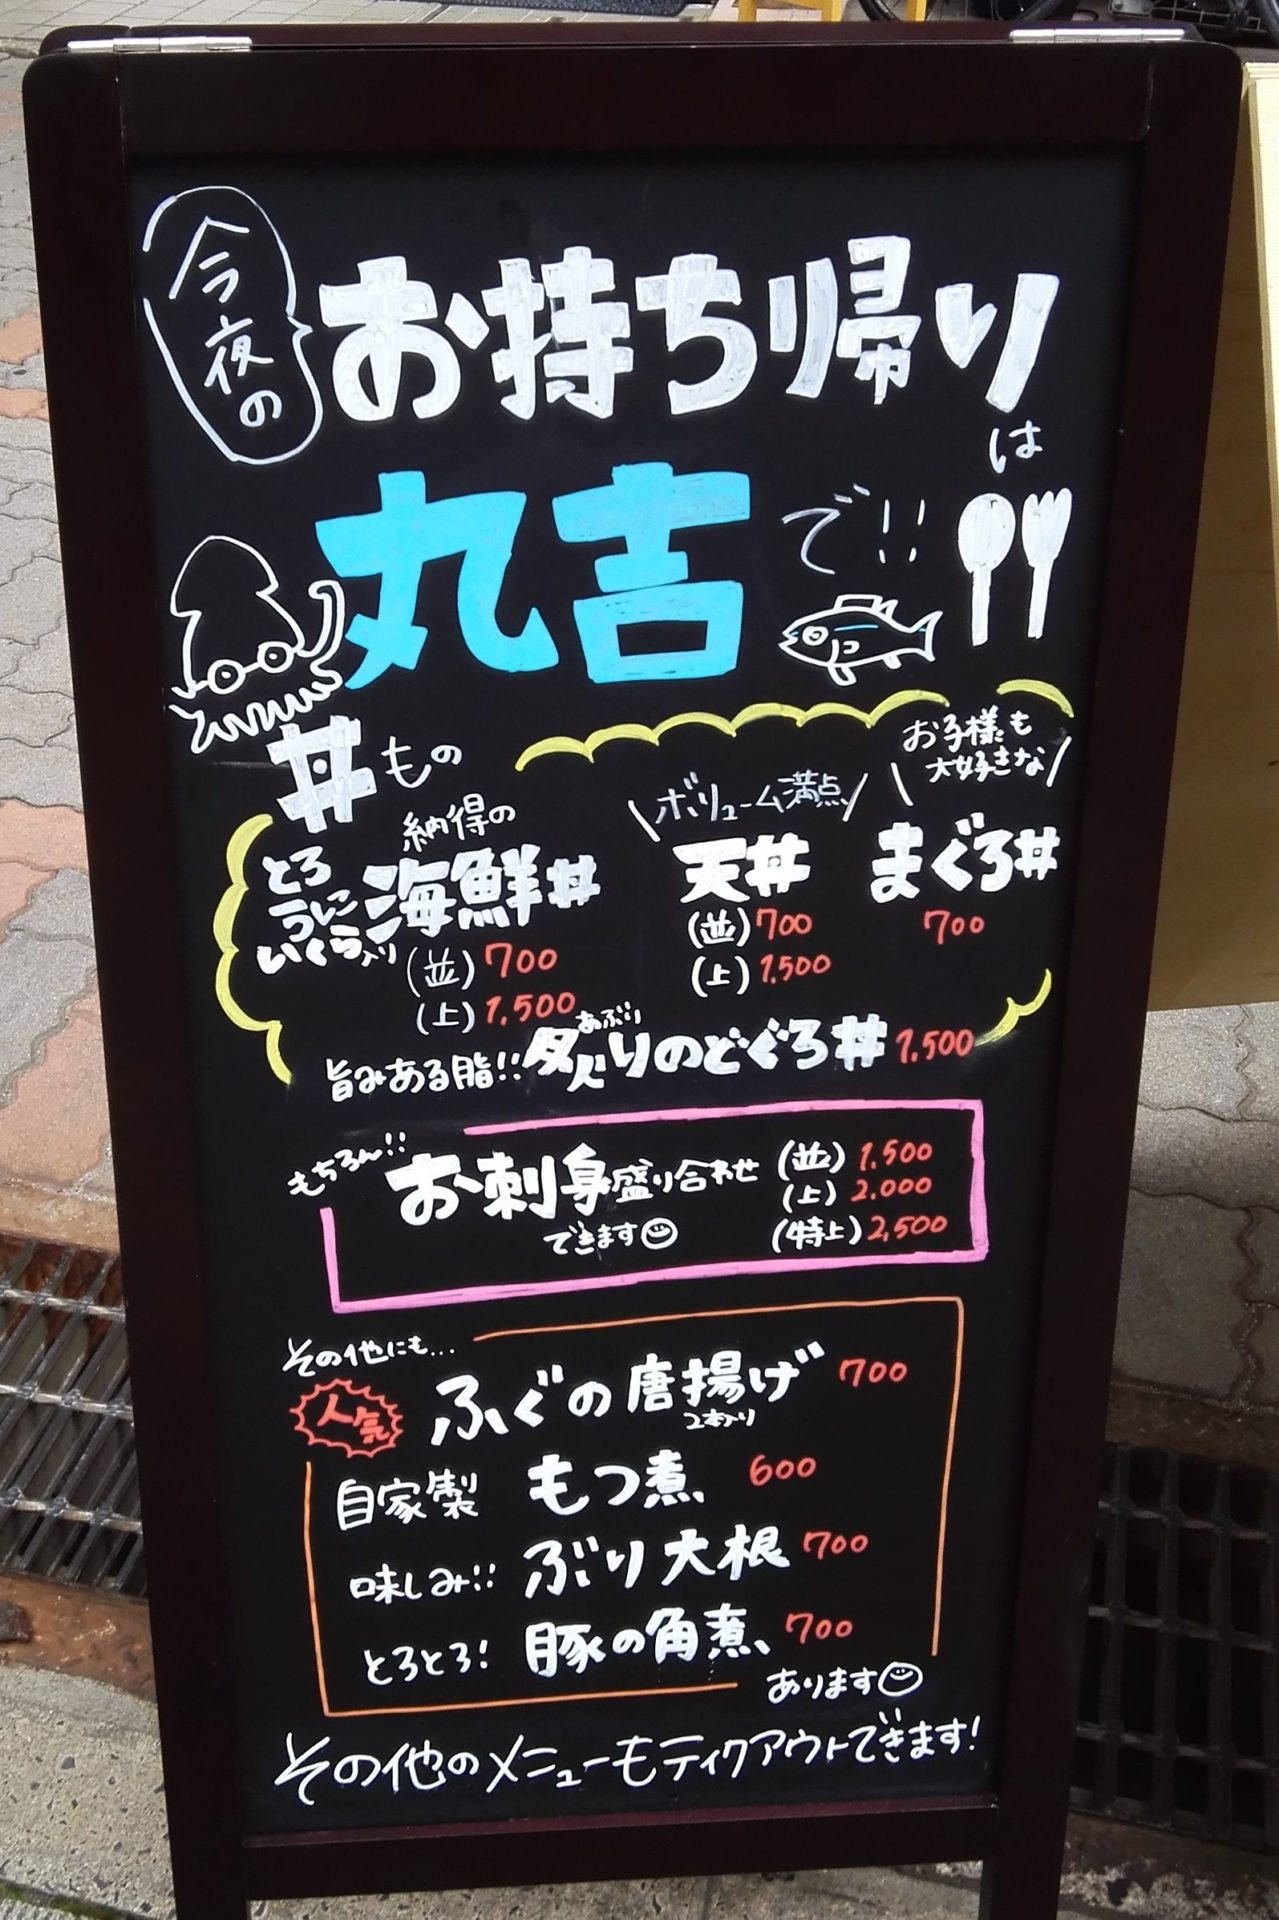 今夜の
お持ち帰り
は
丸吉で!!
丼もの
納得の
とろ
いくら入り
海鮮丼
(並) 700
(上) 1,500
ボリューム満点
天丼
(並) 700
(上) 1,500
お子様も
大好きな
まぐろ丼
700
旨みある脂!! 炙りのどぐろ丼 1,500
あぶり
もちろん!!
お刺身盛り合わせ
できます
(並) 1,500
(上) 2,000
(特上) 2,500
その他にも...
人気 ふぐの唐揚げ 700
2本入り
自家製 もつ煮 600
味しみ!! ぶり大根 700
とろとろ! 豚の角煮 700
あります
その他のメニューもテイクアウトできます!